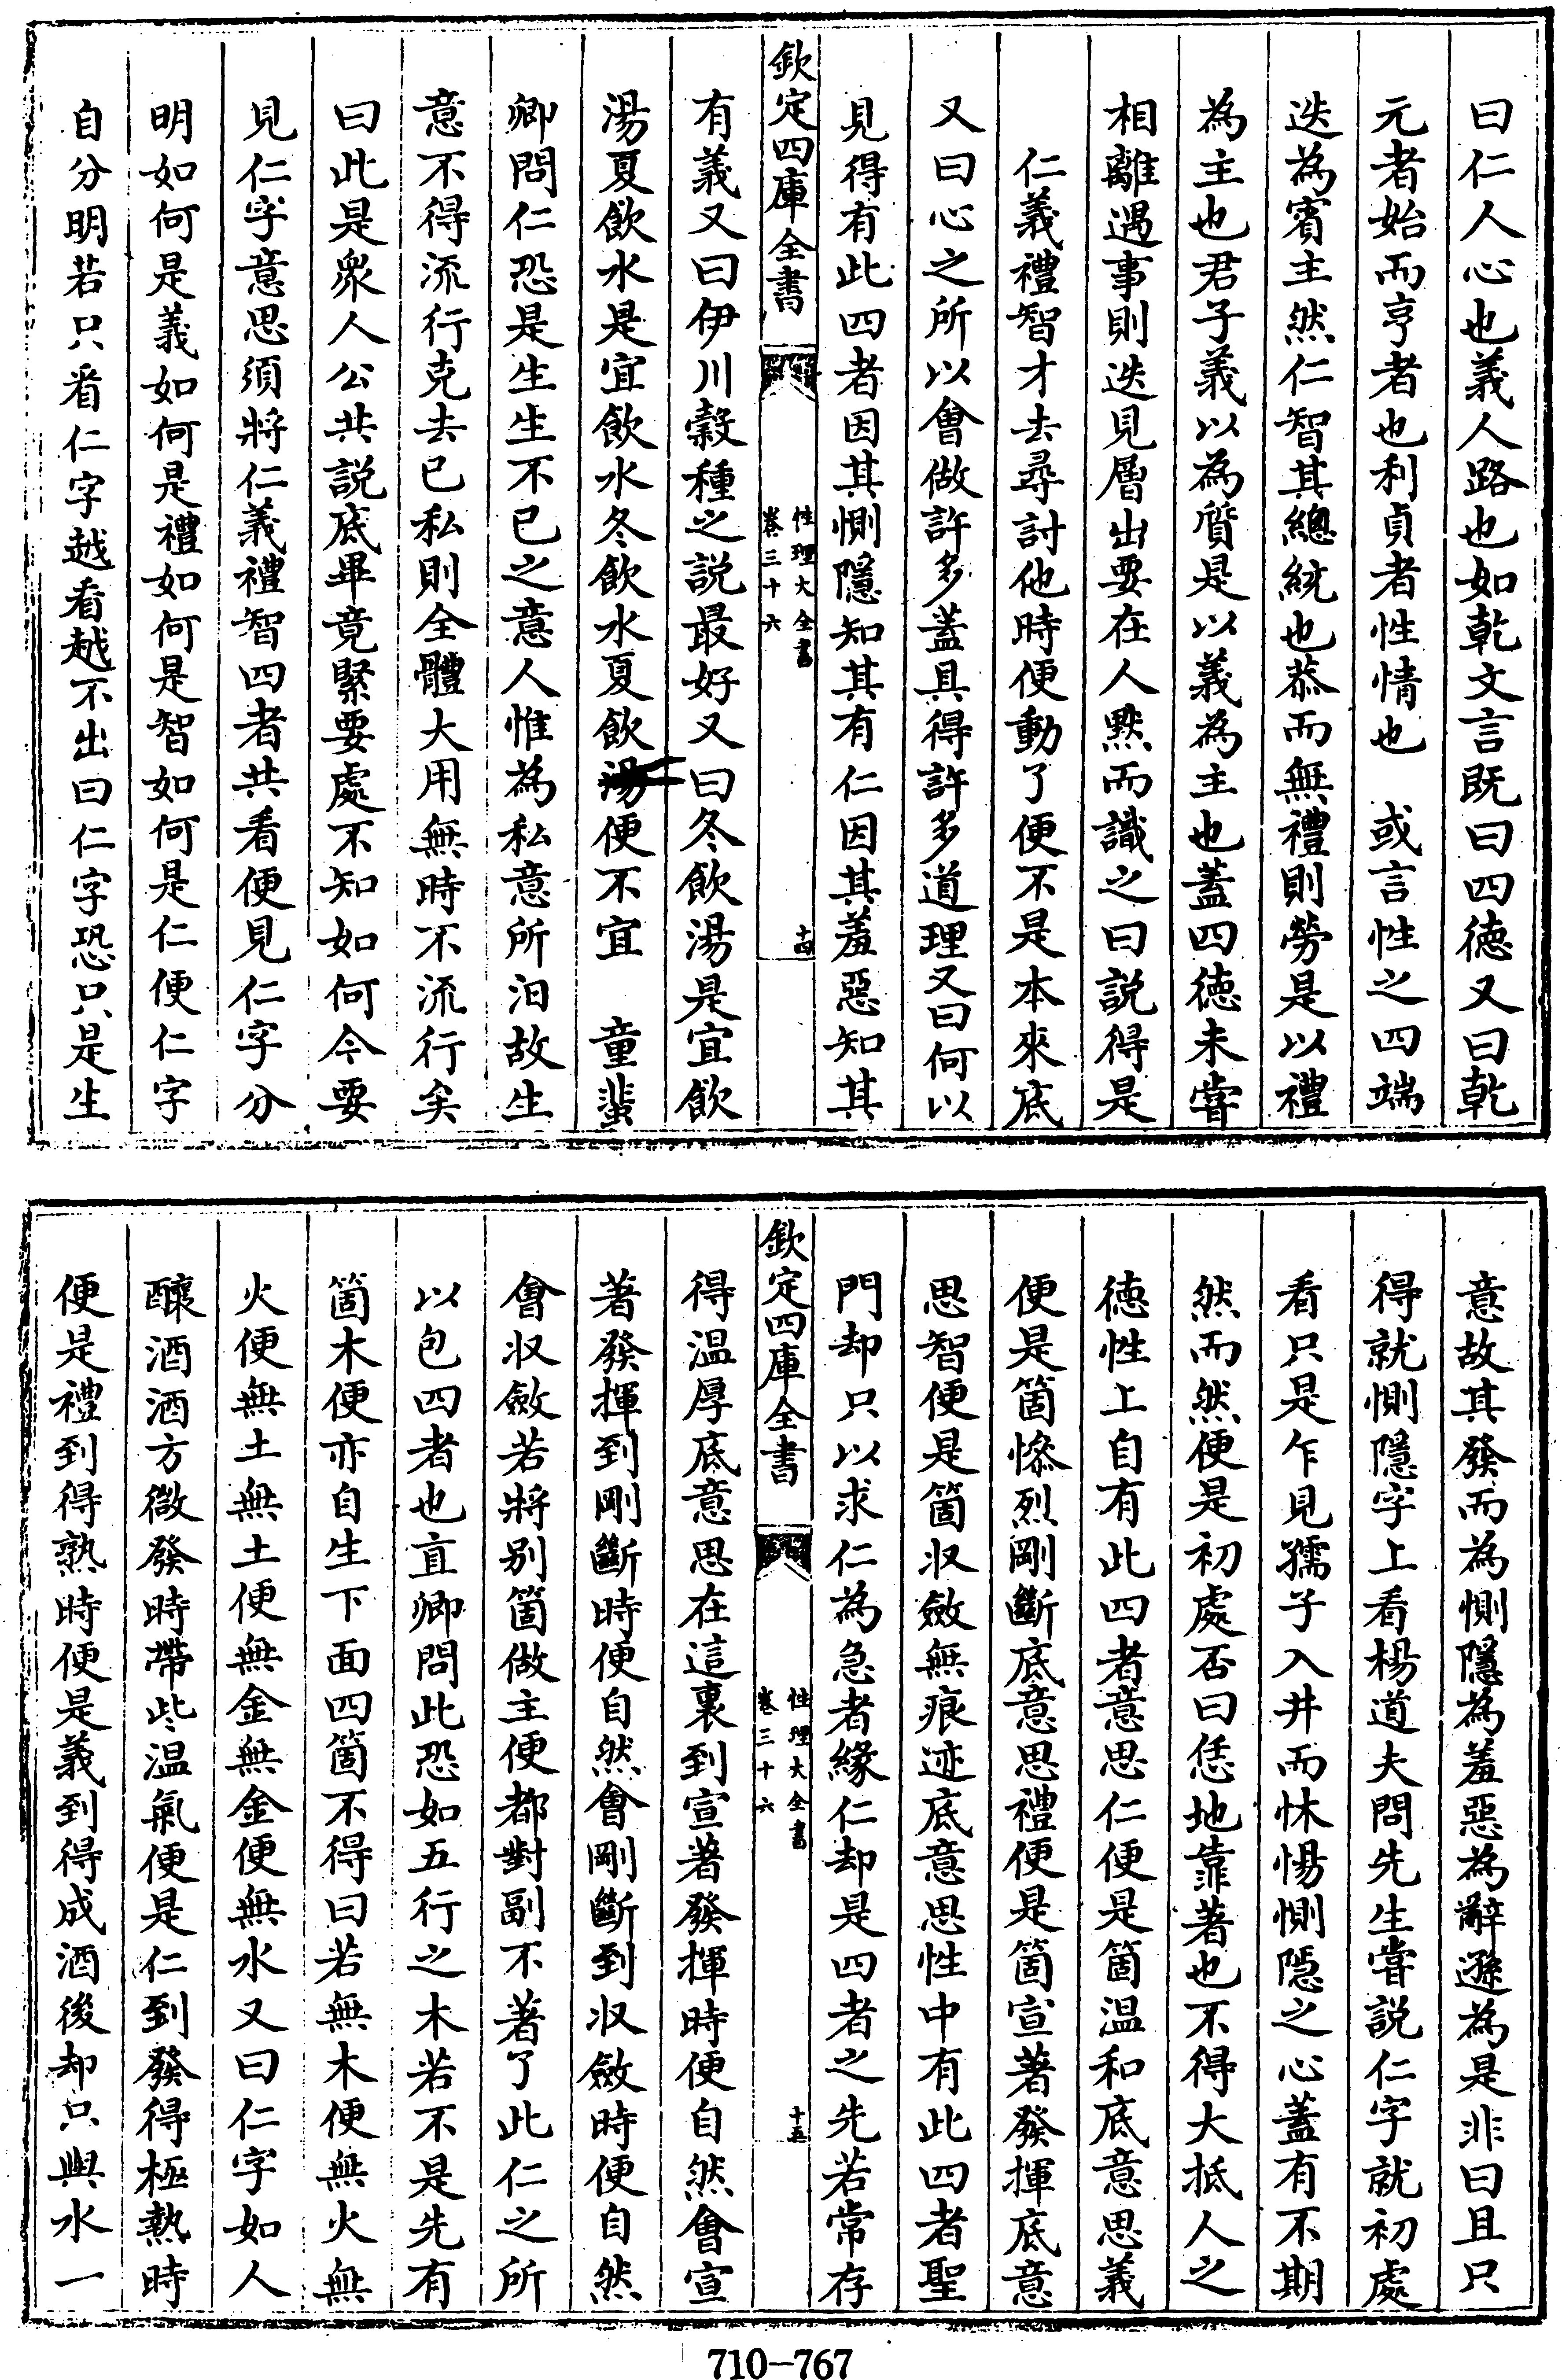 曰仁人心也義人路也如乾文言既曰四徳又曰乾
元者始而亨者也利貞者性情也　或言性之四端
迭為賓主然仁智其總統也恭而無禮則勞是以禮
為主也君子義以為質是以義為主也蓋四徳未嘗
相離遇事則迭見層出要在人黙而識之曰説得是
仁義禮智才去尋討他時便動了便不是本來底
又曰心之所以會做許多蓋具得許多道理又曰何以
見得有此四者因其惻隱知其有仁因其羞惡知其
欽定四庫全書
性理大全書
卷三十六
十四
有義又曰伊川穀種之説最好又曰冬飲湯是宜飲
湯夏飲水是宜飲水冬飲水夏飲湯便不宜　童蜚
卿問仁恐是生生不已之意人惟為私意所汩故生
意不得流行克去已私則全體大用無時不流行矣
曰此是衆人公共説底畢竟緊要處不知如何今要
見仁字意思須將仁義禮智四者共看便見仁字分
明如何是義如何是禮如何是智如何是仁便仁字
自分明若只看仁字越看越不出曰仁字恐只是生
意故其發而為惻隱為羞惡為辭遜為是非曰且只
得就惻隱字上看楊道夫問先生嘗説仁字就初處
看只是乍見孺子入井而怵惕惻隱之心蓋有不期
然而然便是初處否曰恁地靠著也不得大抵人之
徳性上自有此四者意思仁便是箇温和底意思義
便是箇慘烈剛斷底意思禮便是箇宣著發揮底意
思智便是箇收斂無痕迹底意思性中有此四者聖
門却只以求仁為急者緣仁却是四者之先若常存
欽定四庫全書
性理大全書
卷三十六
十五
得温厚底意思在這裏到宣著發揮時便自然會宣
著發揮到剛斷時便自然會剛斷到收斂時便自然
會収斂若將别箇做主便都對副不著了此仁之所
以包四者也直卿問此恐如五行之木若不是先有
箇木便亦自生下面四箇不得曰若無木便無火無
火便無土無土便無金無金便無水又曰仁字如人
釀酒酒方微發時帶些温氣便是仁到發得極熱時
便是禮到得熟時便是義到得成酒後却只與水一
710-767